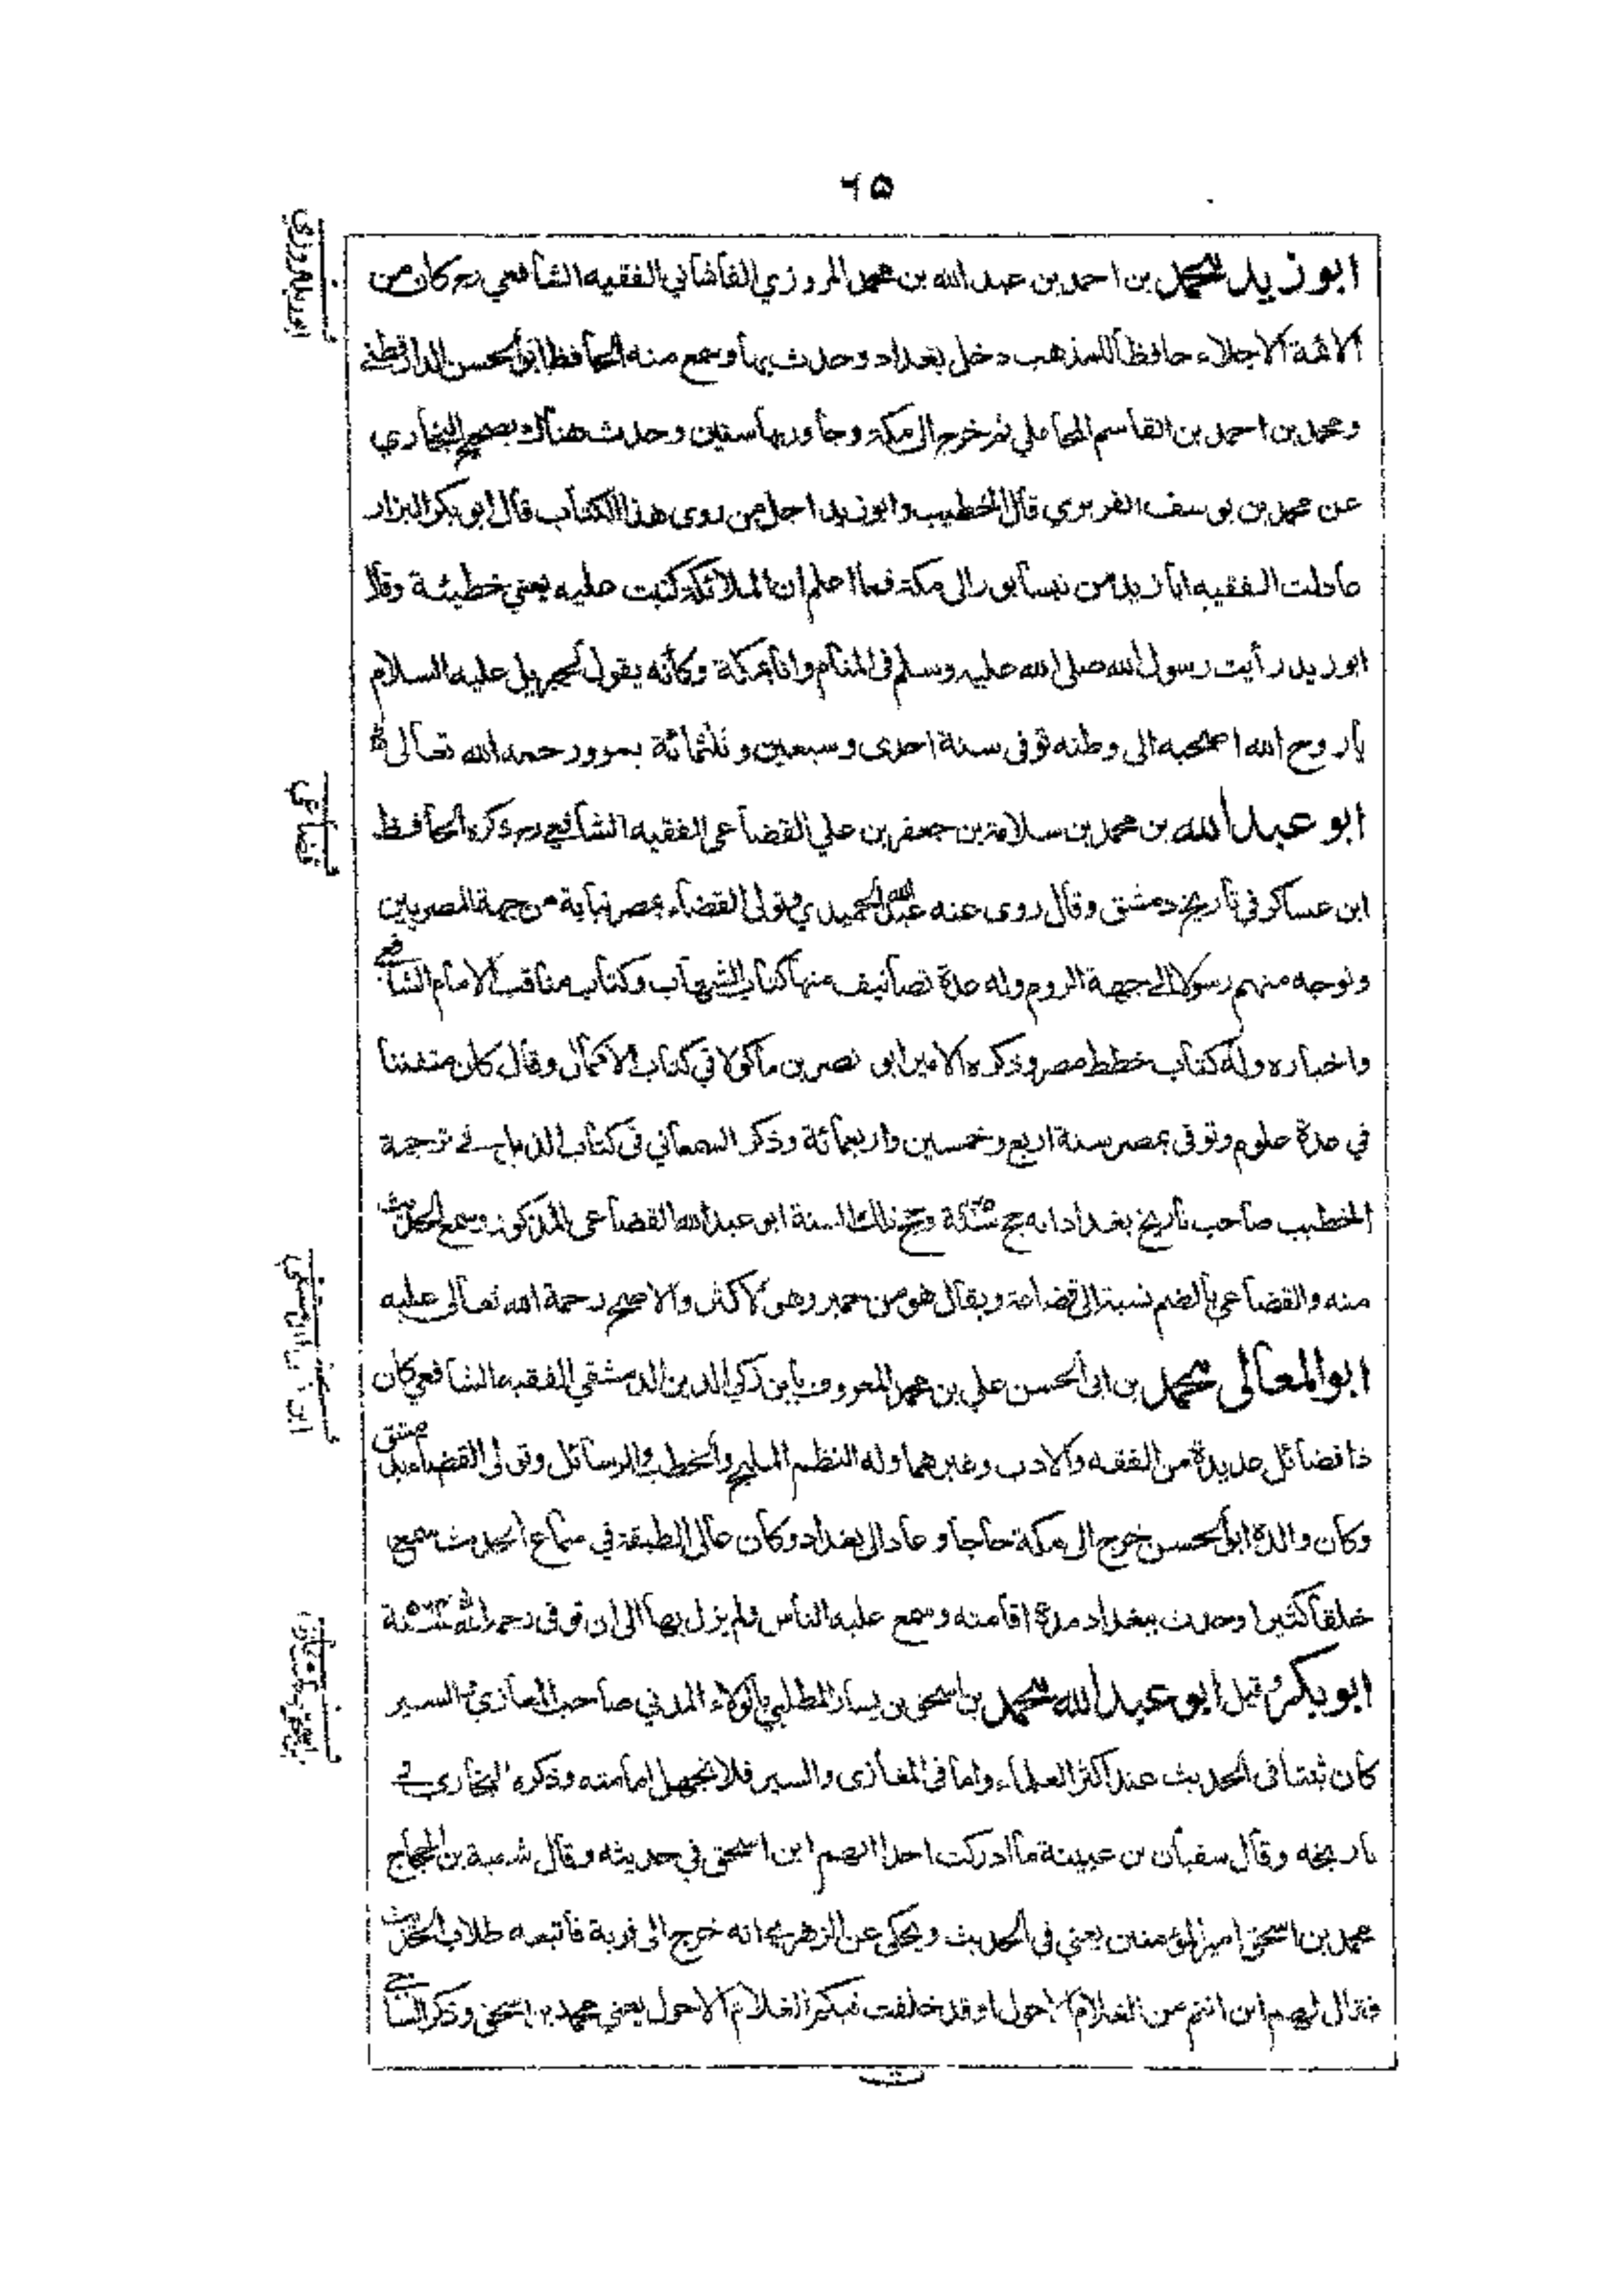 ٦٥
ابو زيد محمد بن احمد بن عبد الله بن محمد المروزي الفاشاني الفقيه الشافعي رح كان من
الائمة الاجلاء حافظا للمذهب دخل بغداد وحدث بها وسمع منه الحافظ ابو الحسن الدارقطني
ومحمد بن احمد بن القاسم المحاملي ثم خرج الى مكة وجاور بها سنين وحدث هناك بصحيح البخاري
عن محمد بن يوسف الفربري قال الخطيب وابو زيد اجل من روى هذا الكتاب قال ابو بكر البزار
عادلت الفقيه ابا زيد من نيسابور الى مكة فما اعلم ان الملائكة كتبت عليه يعني خطيئة وقال
ابو زيد رأيت رسول الله صلى الله عليه وسلم فى المنام وانا بمكة وكأنه يقول لجبريل عليه السلام
يا روح الله اصحبه الى وطنه توفى سنة احدى وسبعين وثلثمائة بمرو رحمه الله تعالى
ابو عبد الله بن محمد بن سلامة بن جعفر بن علي القضاعى الفقيه الشافعي رح ذكره الحافظ
ابن عساكر في تاريخ دمشق وقال روى عنه عبد الله الحميدي وتولى القضاء بمصر نيابة من جهة المصريين
وتوجه منهم رسولا الى جهة الروم وله عدة تصانيف منها كتاب الشهاب وكتاب مناقب الامام الشافعي
واخباره وله كتاب خطط مصر وذكره الامير ابو نصر بن ماكولا في كتاب الاكمال وقال كان متفننا
في عدة علوم وتوفى بمصر سنة اربع وخمسين واربعمائة وذكر السمعاني فى كتاب الذيل في ترجمة
الخطيب صاحب تاريخ بغداد انه حج سنة وحج تلك السنة ابو عبد الله القضاعى المذكور وسمع الحديث
منه والقضاعي بالضم نسبة الى قضاعة ويقال هو من حمير وهو الاكثر والاصح رحمة الله تعالى عليه
ابو المعالى محمد بن ابى الحسن علي بن محمد المعروف بابن زكي الدين الدمشقي الفقيه الشافعي كان
ذا فضائل عديدة من الفقه والادب وغيرهما وله النظم المليح والخطب والرسائل وتولى القضاء بدمشق
وكان والده ابو الحسن خرج الى مكة حاجا وعاد الى بغداد وكان عالى الطبقة في سماع الحديث سمع
خلقا كثيرا وحدث ببغداد مدة اقامته وسمع عليه الناس ولم يزل بها الى ان توفى رحمه الله سنة
ابو بكر وقيل ابو عبد الله محمد بن اسحق بن يسار المطلبي بالولاء المدني صاحب المغازي والسير
كان ثبتا فى الحديث عند اكثر العلماء واما فى المغازى والسير فلا تجهل امامته وذكره البخاري في
تاريخه وقال سفيان بن عيينة ما ادركت احدا اتهم ابن اسحق في حديثه وقال شعبة بن الحجاج
محمد بن اسحق امير المؤمنين يعني في الحديث ويحكى عن الزهري انه خرج الى قرية فاتبعه طلاب الحديث
فقال لهم اين انتم من الغلام الاحول او قد خلفت فيكم الغلام الاحول يعني محمد بن اسحق وذكر الساجي
ابو زيد المروزي
قضاعي
ابن الدمشقي
بن اسحق صاحب المغازي